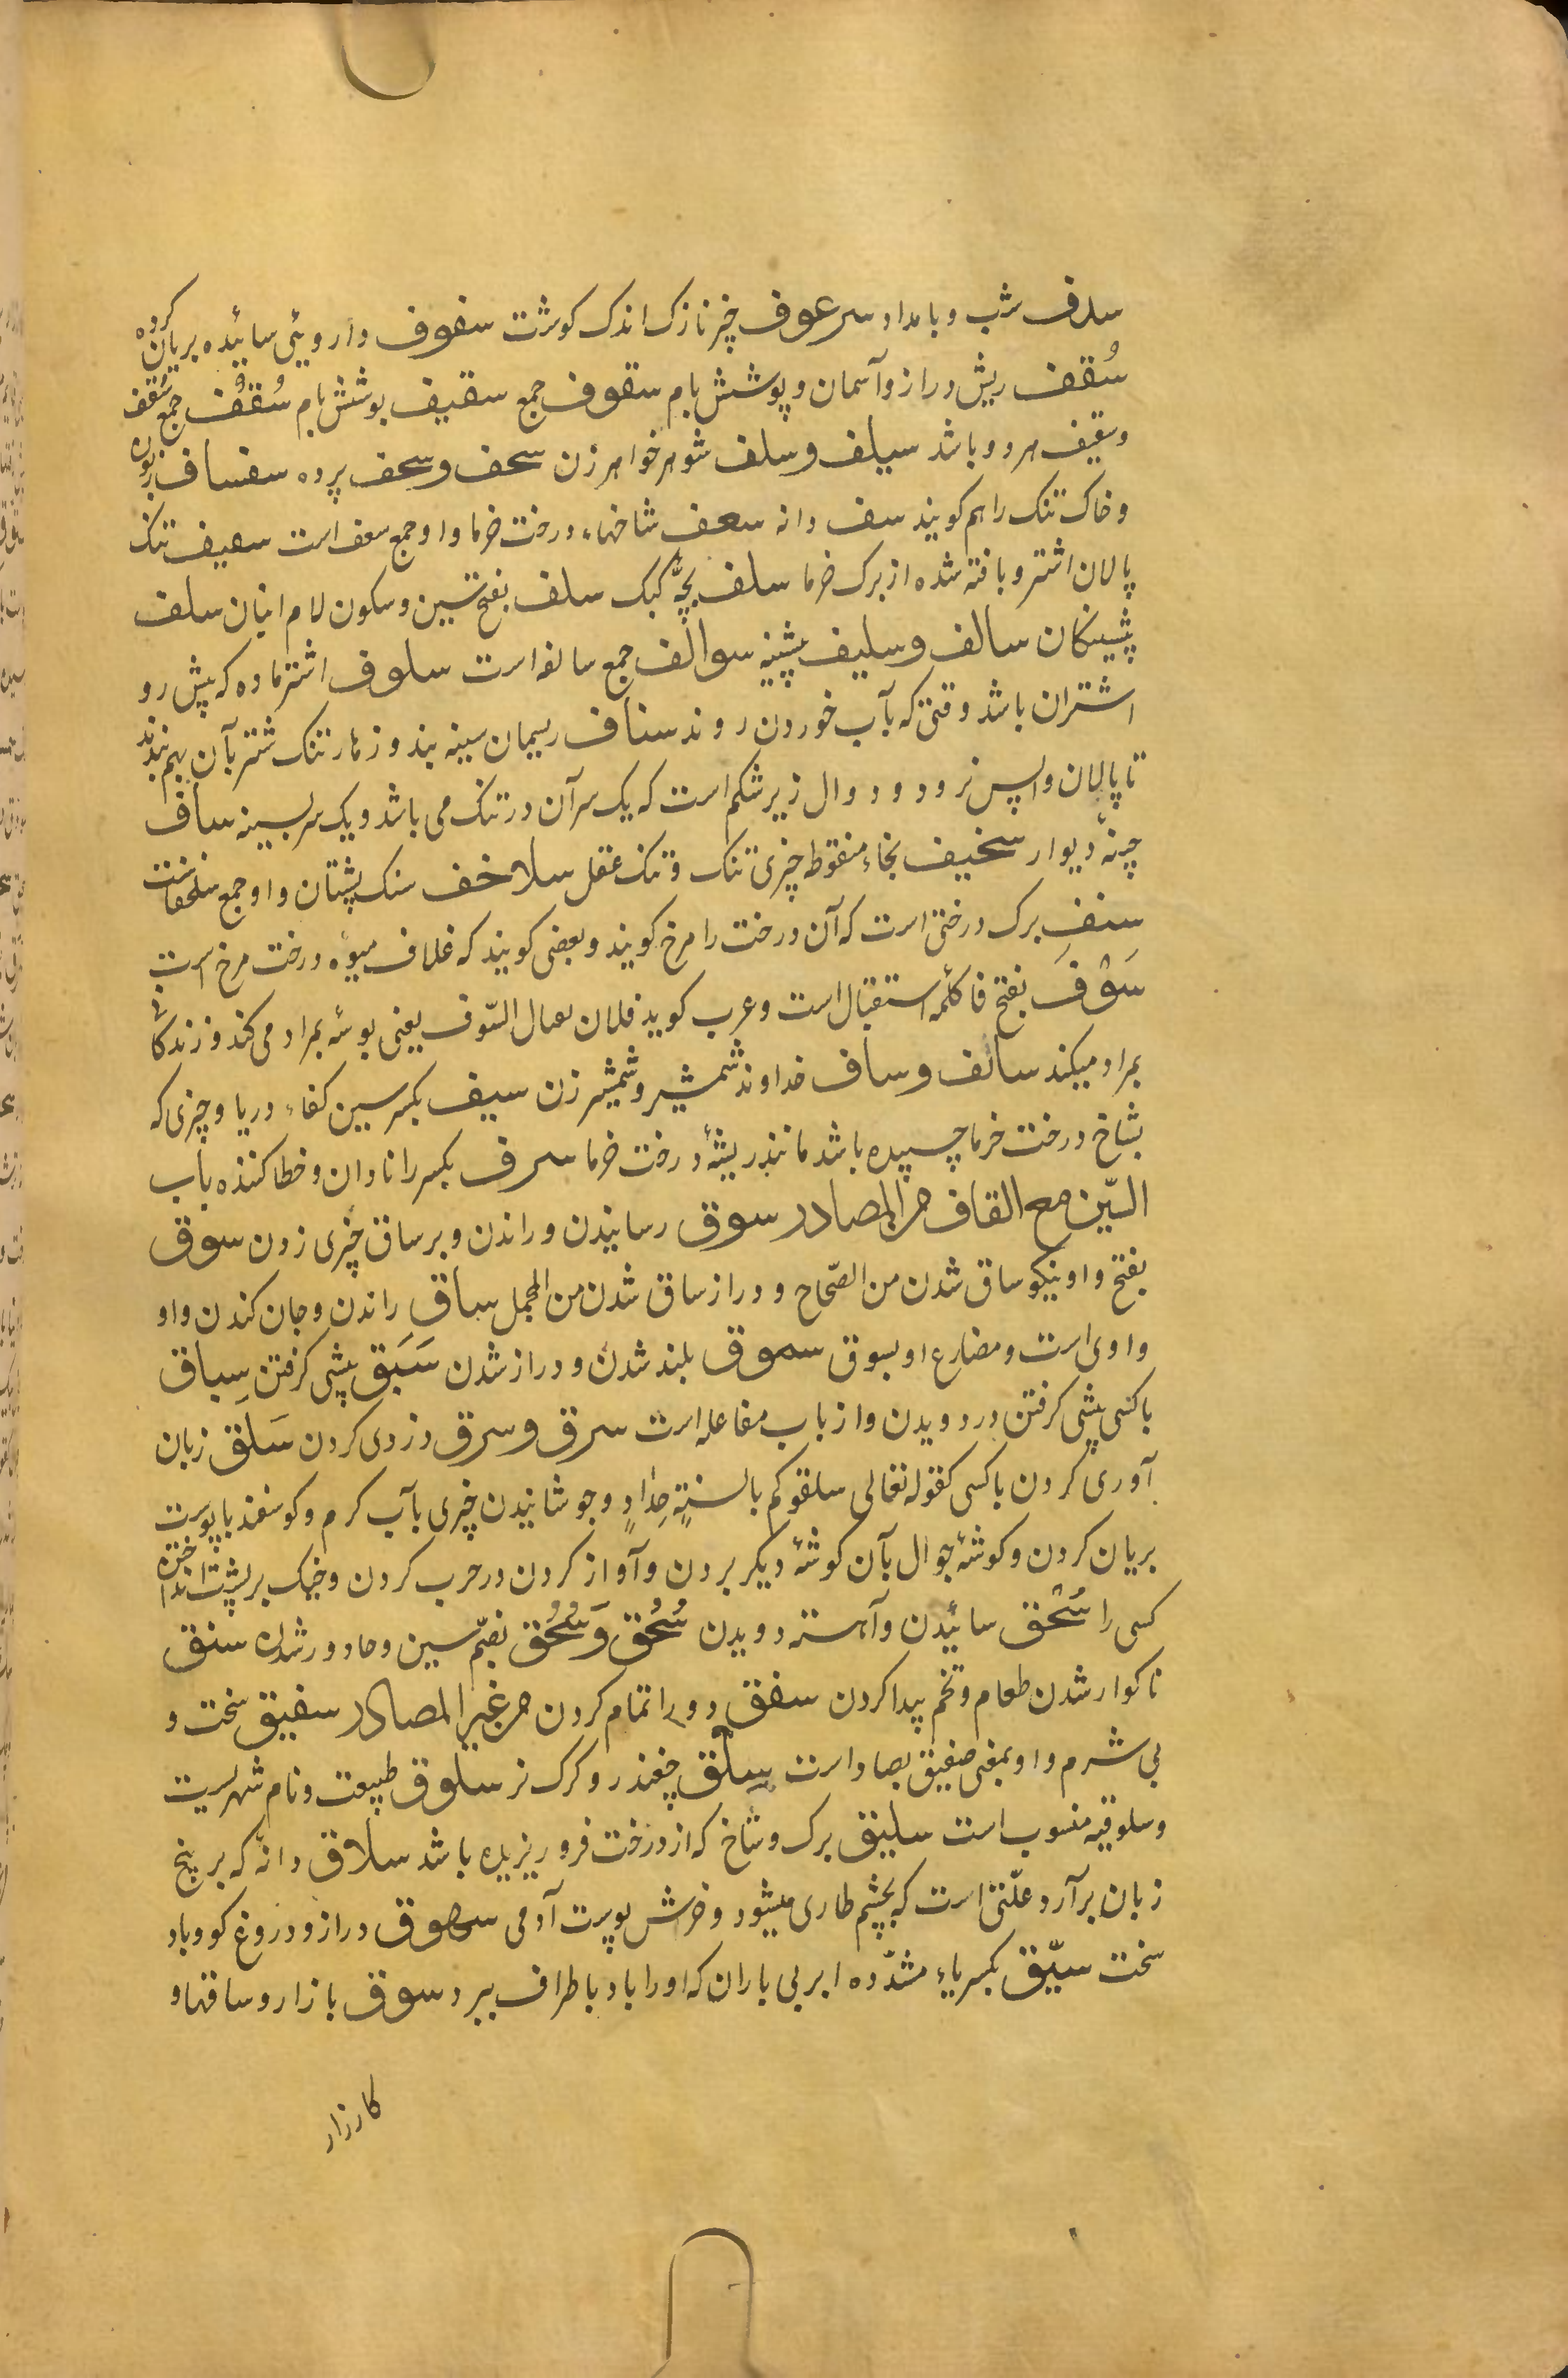 سدف شب و بامداد سرعوف چیز نازک اندک کوشت سفوف داروئی سائیده بریان کرده
سُقف ریش دراز و آسمان و پوشش بام سقوف جمع سقیف پوشش بام سُقُف جمع سَقف
و سقیف هر دو باشد سیلف و سلف شوهر خواهر زن سحف و سحف پرده سفساف زبون
و خاک تنک را هم کویند سف دانه سعف شاخهاء درخت خرما و او جمع سعف است سعیف تنک
پالان اشتر و بافته شده از برک خرما سلف بچّهٔ کبک سلف بفتح سین و سکون لام انبان سلف
پیشینکان سالف و سلیف پیشینه سوالف جمع سالفه است سلوف اشتر ماده که پیش رو
اشتران باشد وقتی که بآب خوردن روند سناف ریسمان سینه بند و زنار تنک شتر بآن بهم بندند
تا پالان واپس نرود و دوال زیر شکم است که یک سر آن در تنک می باشد و یک سر بسینه ساف
چینهٔ دیوار سخیف بخاء منقوطه چیزی تنک و تنک عقل سلاخف سنک پشتان و او جمع سلحفات است
سنف برک درختی است که آن درخت را مرخ کویند و بعضی کویند که غلاف میوهٔ درخت مرخ است
سَوْفَ بفتح فا کلمهٔ استقبال است و عرب کوید فلان السّوف یعنی بوسه بمراد می کند و زندکانی
بمراد میکند سائف و ساف خداوند شمشیر و شمشیر زن سیف بکسر سین کفاء دریا و چیزی که
بشاخ درخت خرما چسپیده باشد مانند ریشهٔ درخت خرما سرف بکسر را نادان و خطا کننده باب
السّین مع القاف من المصادر سوق رسانیدن و راندن و بر ساق چیزی زدن سوق
بفتح واو نیکو ساق شدن من الصّحاح و دراز ساق شدن من المجمل سباق راندن و جان کندن و او
واوی است و مضارع او یسوق سموق بلند شدن و دراز شدن سَبَق پیشی کرفتن سِباق
با کسی پیشی کرفتن در دویدن و از باب مفاعله است سرق و سرق دزدی کردن سَلق زبان
آوری کردن با کسی کقوله تعالی سلقوکم بالسنةٍ حِدادٍ و جوشانیدن چیزی بآب کرم و کوسفند با پوست
بریان کردن و کوشهٔ جوال بآن کوشهٔ دیکر بردن و آواز کردن در حرب کردن و خیک بر پشت انداختن
کسی را سَحْق سائیدن و آهسته دویدن سُحْق وَ سُحُق بضمّ سین و حا دور شدن سنق
ناکوار شدن طعام و تخم پیدا کردن سفق دو را تمام کردن من غیر المصادر سفیق سخت و
بی شرم و او بمعنی صفیق بصاد است سِلْق چغندر و کرک نر سلوق طبیعت و نام شهریست
و سلوقیه منسوب است سلیق برک و شاخ که از درخت فرو ریزیده باشد سلاق دانه که بر بیخ
زبان بر آرد و علّتی است که بچشم طاری میشود و خرش پوست آدمی سهوق دراز و دروغ کو و باد
سخت سیّق بکسر یاء مشدّده ابر بی باران که او را باد باطراف ببرد سوق بازار و ساقها و
کارزار